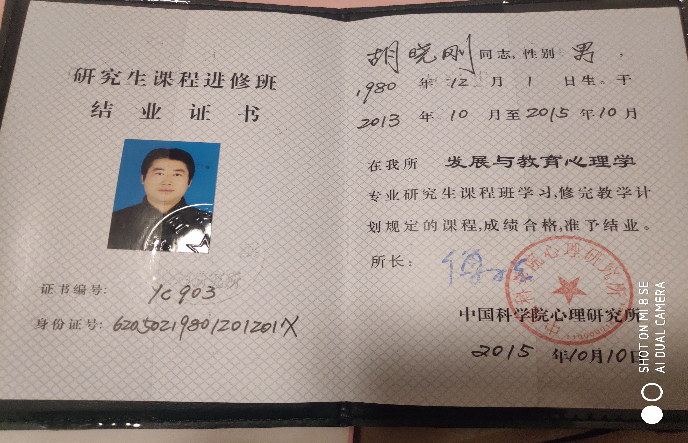 研究生课程进修班
结业证书
证书编号: YC903
身份证号: 62050219801201201X
胡晓刚同志, 性别 男,
1980 年 12 月 1 日生。于
2013 年 10 月至 2015 年 10 月
在我所 发展与教育心理学
专业研究生课程班学习,修完教学计
划规定的课程,成绩合格,准予结业。
所长:
中国科学院心理研究所
2015 年10月10日
SHOT ON MI 8 SE
AI DUAL CAMERA